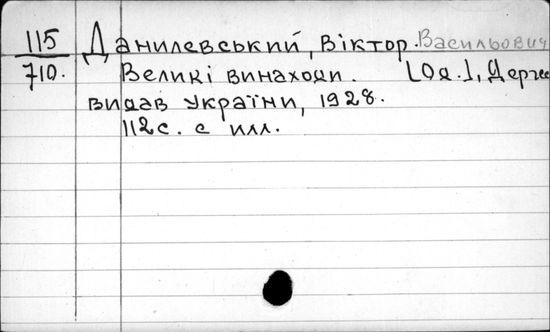 115 Данилевський, Віктор. Васильович
710. Великі винаходи. [Од.], Держ
видав України, 1928.
112с. с илл.